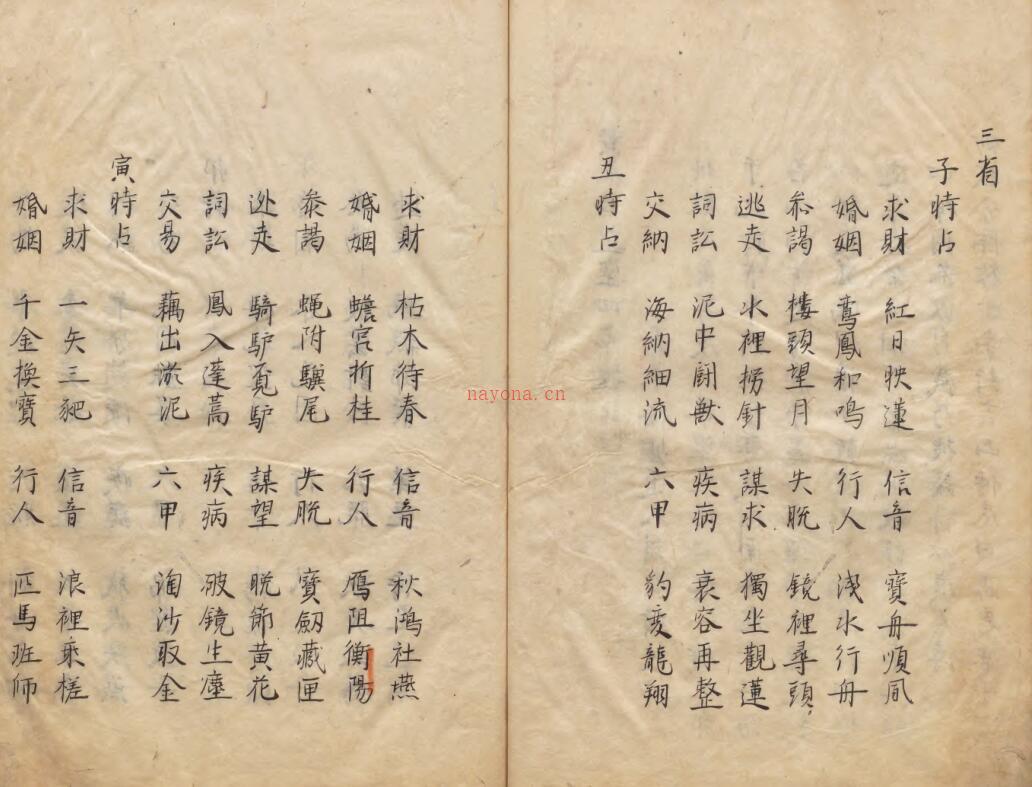 三省
子時占
求財 紅日映蓮 信音 寶舟順風
婚姻 鸾鳳和鳴 行人 浅水行舟
叅謁 楼頭望月 失脱 鏡裡尋頭
逃走 水裡捞針 謀求 獨坐觀蓮
詞訟 泥中鬪獸 疾病 衰容再整
交納 海納細流 六甲 豹变龍翔
丑時占
求財 枯木待春 信音 秋鴻社燕
婚姻 蟾宫折桂 行人 鴈阻衡陽
叅謁 蝇附驥尾 失脱 寶劔藏匣
迯走 騎驴覓驴 謀望 晩節黄花
詞訟 鳳入蓬蒿 疾病 破鏡生塵
交易 藕出淤泥 六甲 淘沙取金
寅時占
求財 一矢三豝 信音 浪裡乘槎
婚姻 千金換寶 行人 匹馬班师
nayona.cn